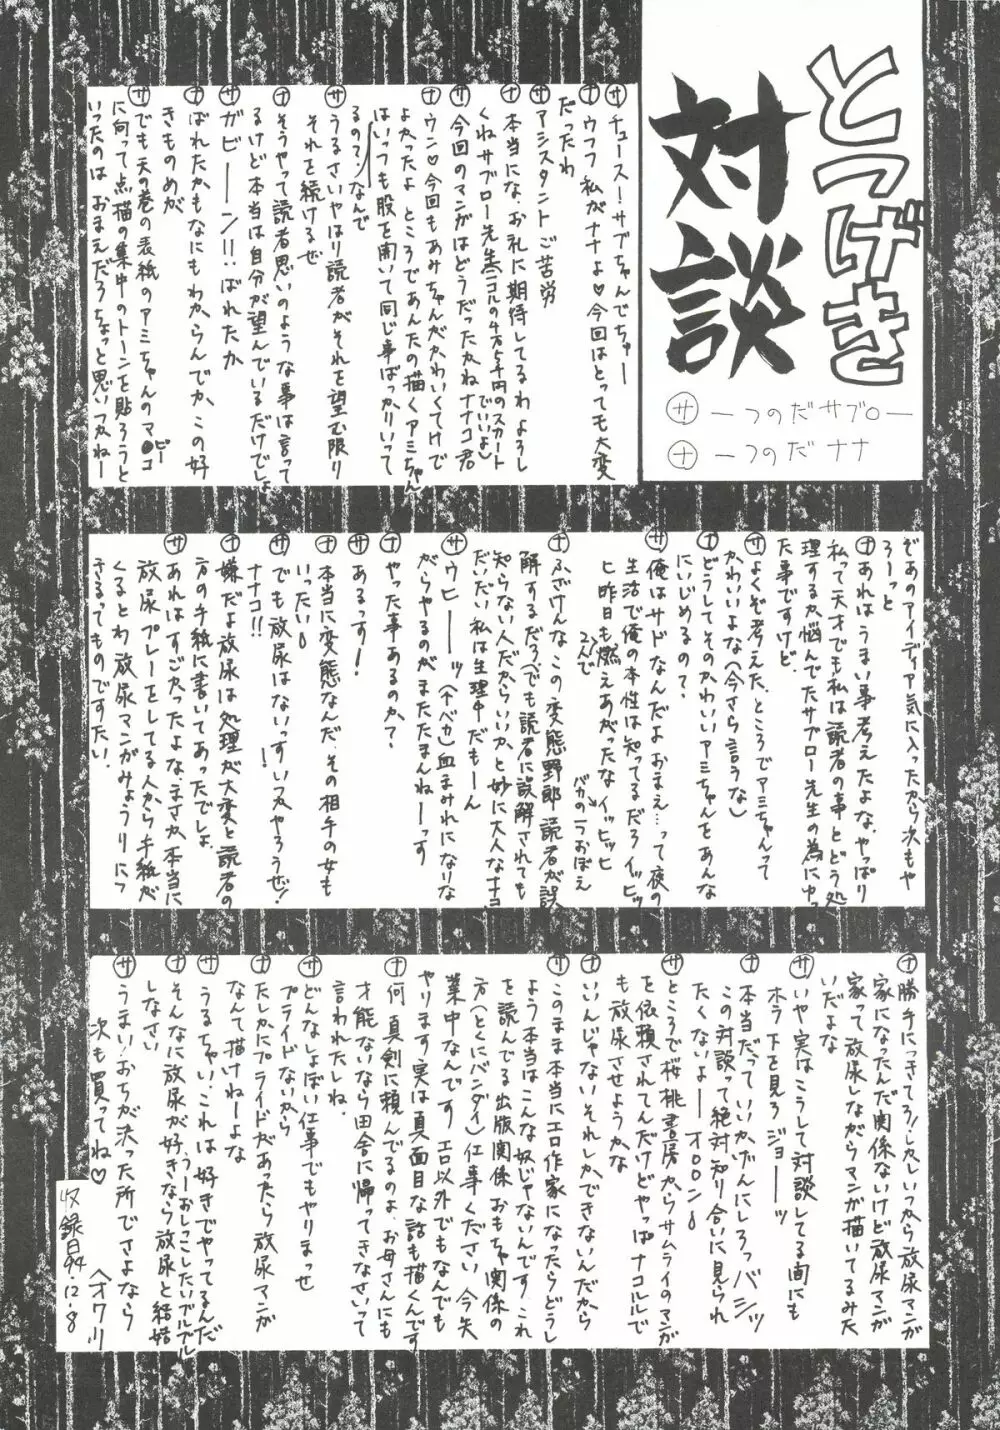 とつげき
対談
サ ーつのだサブロー
ナ ーつのだナナ
サ チュースーサブちゃんでちゅー
ナ ウフフ 私がナナよ♡今回はとっても大変
だったわ
サ アシスタントご苦労
ナ 本当にな、お礼に期待してるわよろし
くねサブロー先生(ニコルの4万5千円のスカート
でいいよ)
サ 今回のマンガはどうだったかねナナコ君
ナ ウン♡今回もあみちゃんがかわいくてけで
よかったよ ところであんたの描くアミちゃん
はいっつも股を開いて同じ事ばっかりいって
るの?なんで
サ うるさいやはり読者がそれを望む限り
それを続けるぜ
ナ そうやって読者思いのような事は言って
るけど本当は自分が望んでいるだけでしょ
サ ガビーーン!!ばれたか
ナ ばれたかもなにもわからんでか、この好
きものめが
サ でも天の巻の表紙のアミちゃんのマ●コ
ピー
に向って点描の集中のトーンを貼ろうと
いったのは おまえだろちょっと思いつかねー
ぞあのアイディア気に入ったから次もや
ろーっと
ナ あれはうまい事考えたよな、やっぱり
私って天才でも私は読者の事とどう処
理するか悩んでたサブロー先生の為にやっ
た事ですけど、
サ よくぞ考えた、ところでアミちゃんって
かわいいよな(今さら言うな)
ナ どうしてそのかわいいアミちゃんをあんな
にいじめるの?
サ 俺はサドなんだよおまえ…って夜の
生活で俺の本性は知ってるだろイッヒッ
ヒ昨日も燃えあがったなイッヒッヒ
2人で
バカの一つおぼえ
ナ ふざけんな、この変態野郎 読者が誤
解するだろ(でも読者に誤解されても
知らない人だからいいかと妙に大人なナナコ
だいだい私は生理中だもーん
サ ウヒーーッ(チベカ)血まみれになりな
がらやるのがまたたまんねーーっす
ナ やった事あるのか?
サ あるっす!
ナ 本当に変態なんだ、その相手の女も
いったい
サ でも放尿はないっすいつかやろうぜ!
ナナコ!!
ナ 嫌だよ放尿は処理が大変と読者の
方の手紙に書いてあったでしょ
サ あれはすごかったよな、まさか本当に
放尿プレーをしてる人から手紙が
くるとわ 放尿マンガみょうりにつ
きるってものですたい、
ナ 勝手につきてろ!しかしいつから放尿マンガ
家になったんだ関係ないけど放尿マンガ
家って放尿しながらマンガ描いてるみた
いだよな
サ いや実はこうして対談してる間にも
ホラ下を見ろ ジョーーッ
ナ 本当だっていいかげんにしろっバシッ
この対談って絶対知り合いに見られ
たくないよーー オロロン
サ ところで桜桃書房からサムライのマンガ
を依頼されてんだけどやっぱナコルルで
も放尿させようかな
ナ いいんじゃないそれしかできないんだから
サ このまま本当にエロ作家になったらどうし
よう本当はこんな奴じゃないんです、これ
を読んでる出版関係 おもちゃ関係の
方(とくにバンダイ)仕事ください、今失
業中なんです エロ以外でもなんでも
やります 実は真面目な話も描くんです
ナ 何、真剣に頼んでるのよ、お母さんにも
才能ないなら田舎に帰ってきなさいって
言われたしね、
サ どんなしょぼい仕事でもやりまっせ
プライドないから
ナ たしかにプライドがあったら放尿マンガ
なんて描けねーよな
サ うるちゃい、これは好きでやってるんだ
うーおしっこしたいブルブル
ナ そんなに放尿が好きなら放尿と結婚
しなさい
サ うまい!おちが決った所でさよなら
次も買ってね♡
〈オワリ〉
収録日94.12.8